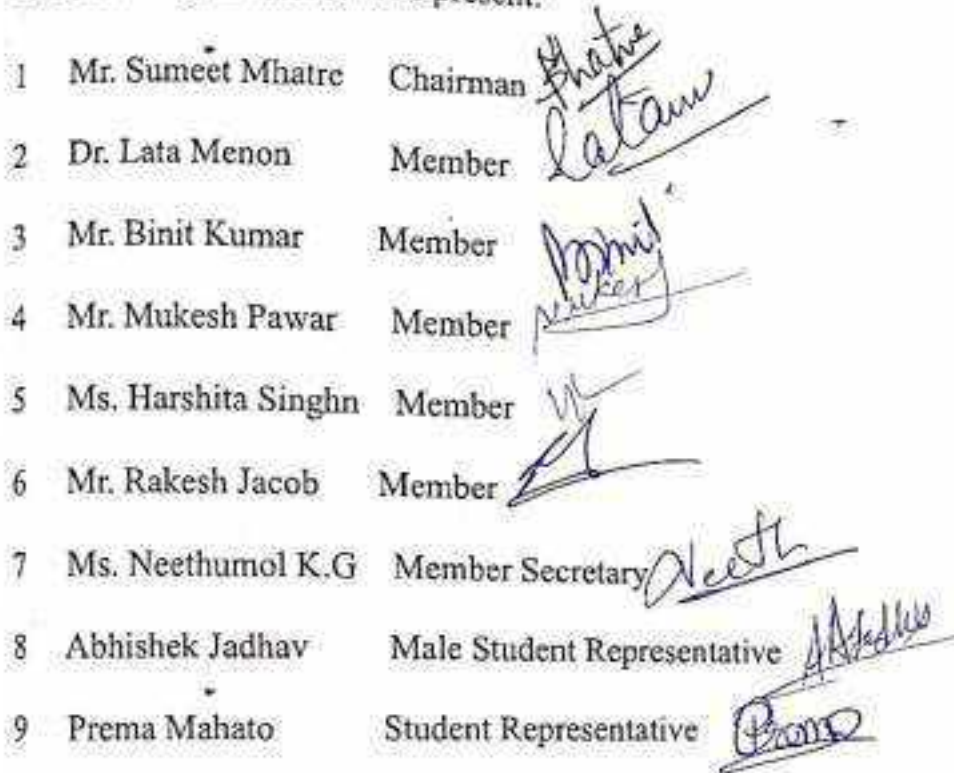 present.
1 Mr. Sumeet Mhatre Chairman
2 Dr. Lata Menon Member
3 Mr. Binit Kumar Member
4 Mr. Mukesh Pawar Member
5 Ms. Harshita Singhn Member
6 Mr. Rakesh Jacob Member
7 Ms. Neethumol K.G Member Secretary Neeth
8 Abhishek Jadhav Male Student Representative
9 Prema Mahato Student Representative